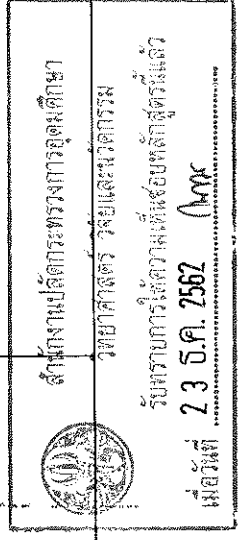 สำนักงานปลัดกระทรวงการอุดมศึกษา
วิทยาศาสตร์ วิจัยและนวัตกรรม
รับทราบการให้ความเห็นชอบหลักสูตรนี้แล้ว
เมื่อวันที่ 23 ธ.ค. 2562